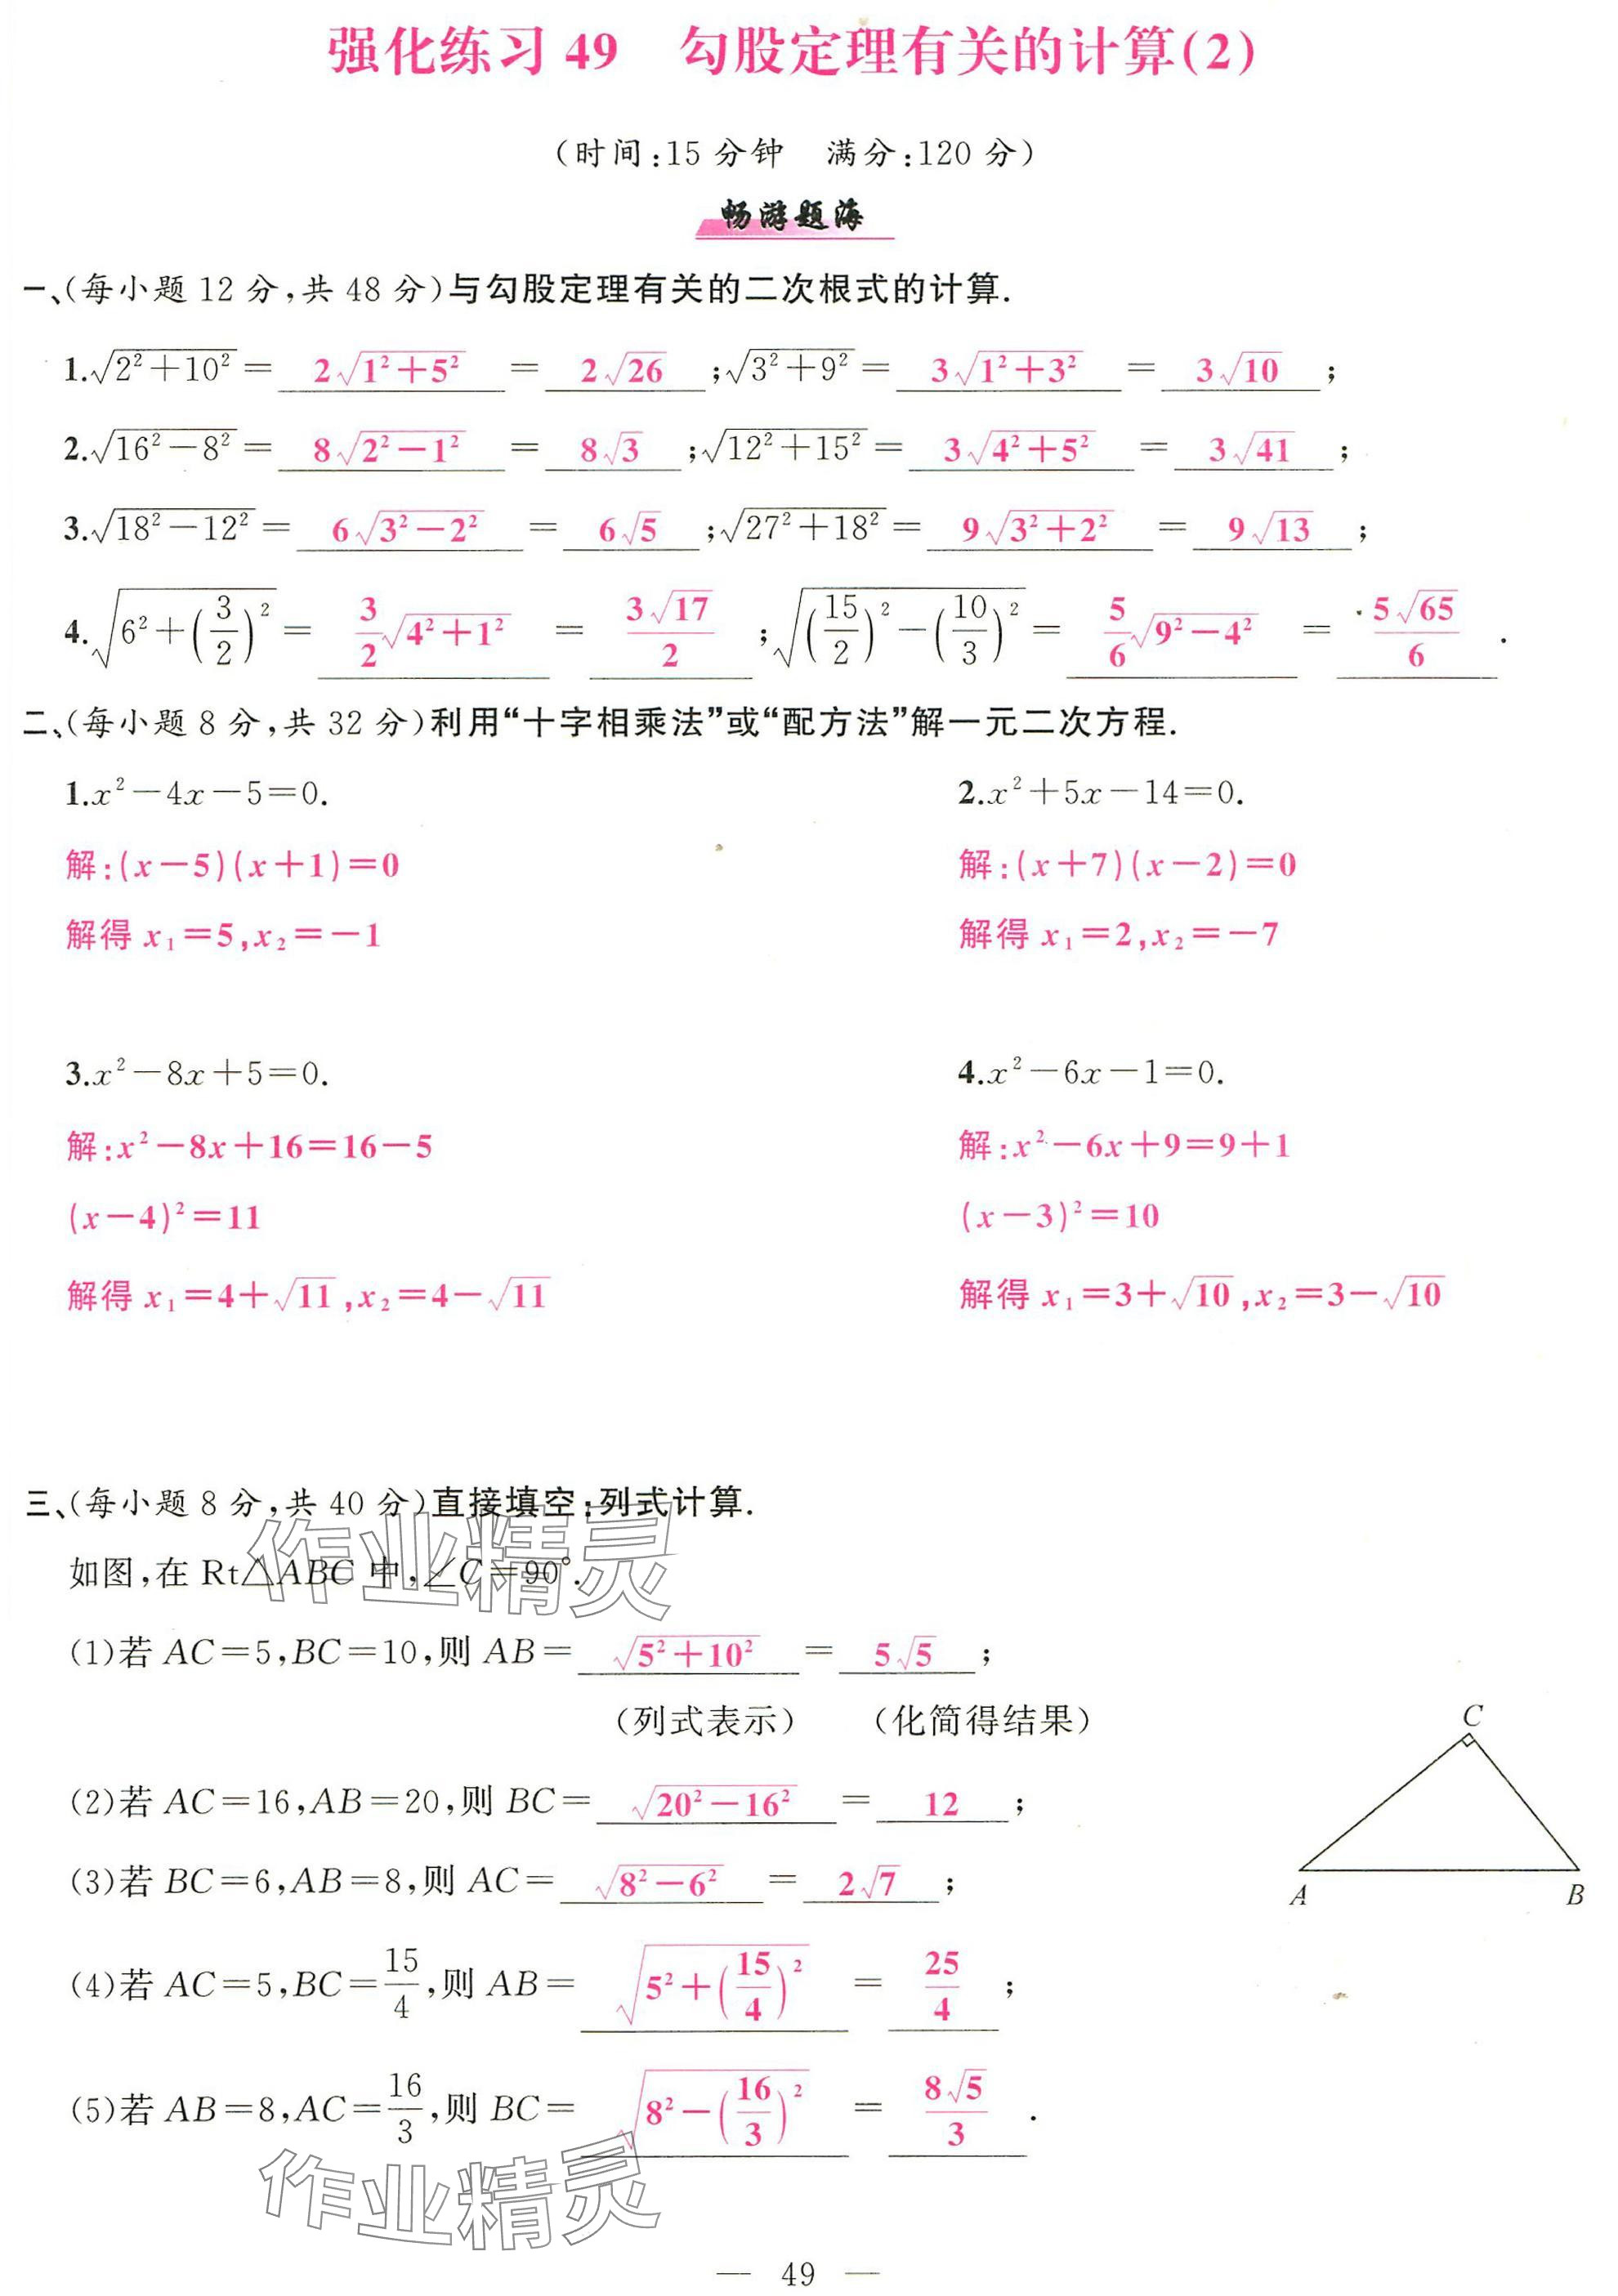 强化练习 49　勾股定理有关的计算(2)
(时间:15 分钟　满分:120 分)
畅游题海
一、(每小题 12 分,共 48 分)与勾股定理有关的二次根式的计算.
1.√(2²+10²)= 2√(1²+5²) = 2√26 ;√(3²+9²)= 3√(1²+3²) = 3√10 ;
2.√(16²-8²)= 8√(2²-1²) = 8√3 ;√(12²+15²)= 3√(4²+5²) = 3√41 ;
3.√(18²-12²)= 6√(3²-2²) = 6√5 ;√(27²+18²)= 9√(3²+2²) = 9√13 ;
4.√(6²+(3/2)²)= 3/2√(4²+1²) = 3√17/2 ;√((15/2)²-(10/3)²)= 5/6√(9²-4²) = 5√65/6 .
二、(每小题 8 分,共 32 分)利用“十字相乘法”或“配方法”解一元二次方程.
1.x²-4x-5=0.　2.x²+5x-14=0.
解:(x-5)(x+1)=0　解:(x+7)(x-2)=0
解得 x₁=5,x₂=-1　解得 x₁=2,x₂=-7
3.x²-8x+5=0.　4.x²-6x-1=0.
解:x²-8x+16=16-5　解:x²-6x+9=9+1
(x-4)²=11　(x-3)²=10
解得 x₁=4+√11,x₂=4-√11　解得 x₁=3+√10,x₂=3-√10
三、(每小题 8 分,共 40 分)直接填空:列式计算.
作业精灵
如图,在 Rt△ABC 中,∠C=90°.
(1)若 AC=5,BC=10,则 AB= √(5²+10²) = 5√5 ;
(列式表示)　(化简得结果)
C
(2)若 AC=16,AB=20,则 BC= √(20²-16²) = 12 ;
(3)若 BC=6,AB=8,则 AC= √(8²-6²) = 2√7 ;
A　B
(4)若 AC=5,BC=15/4,则 AB= √(5²+(15/4)²) = 25/4 ;
(5)若 AB=8,AC=16/3,则 BC= √(8²-(16/3)²) = 8√5/3 .
作业精灵
— 49 —